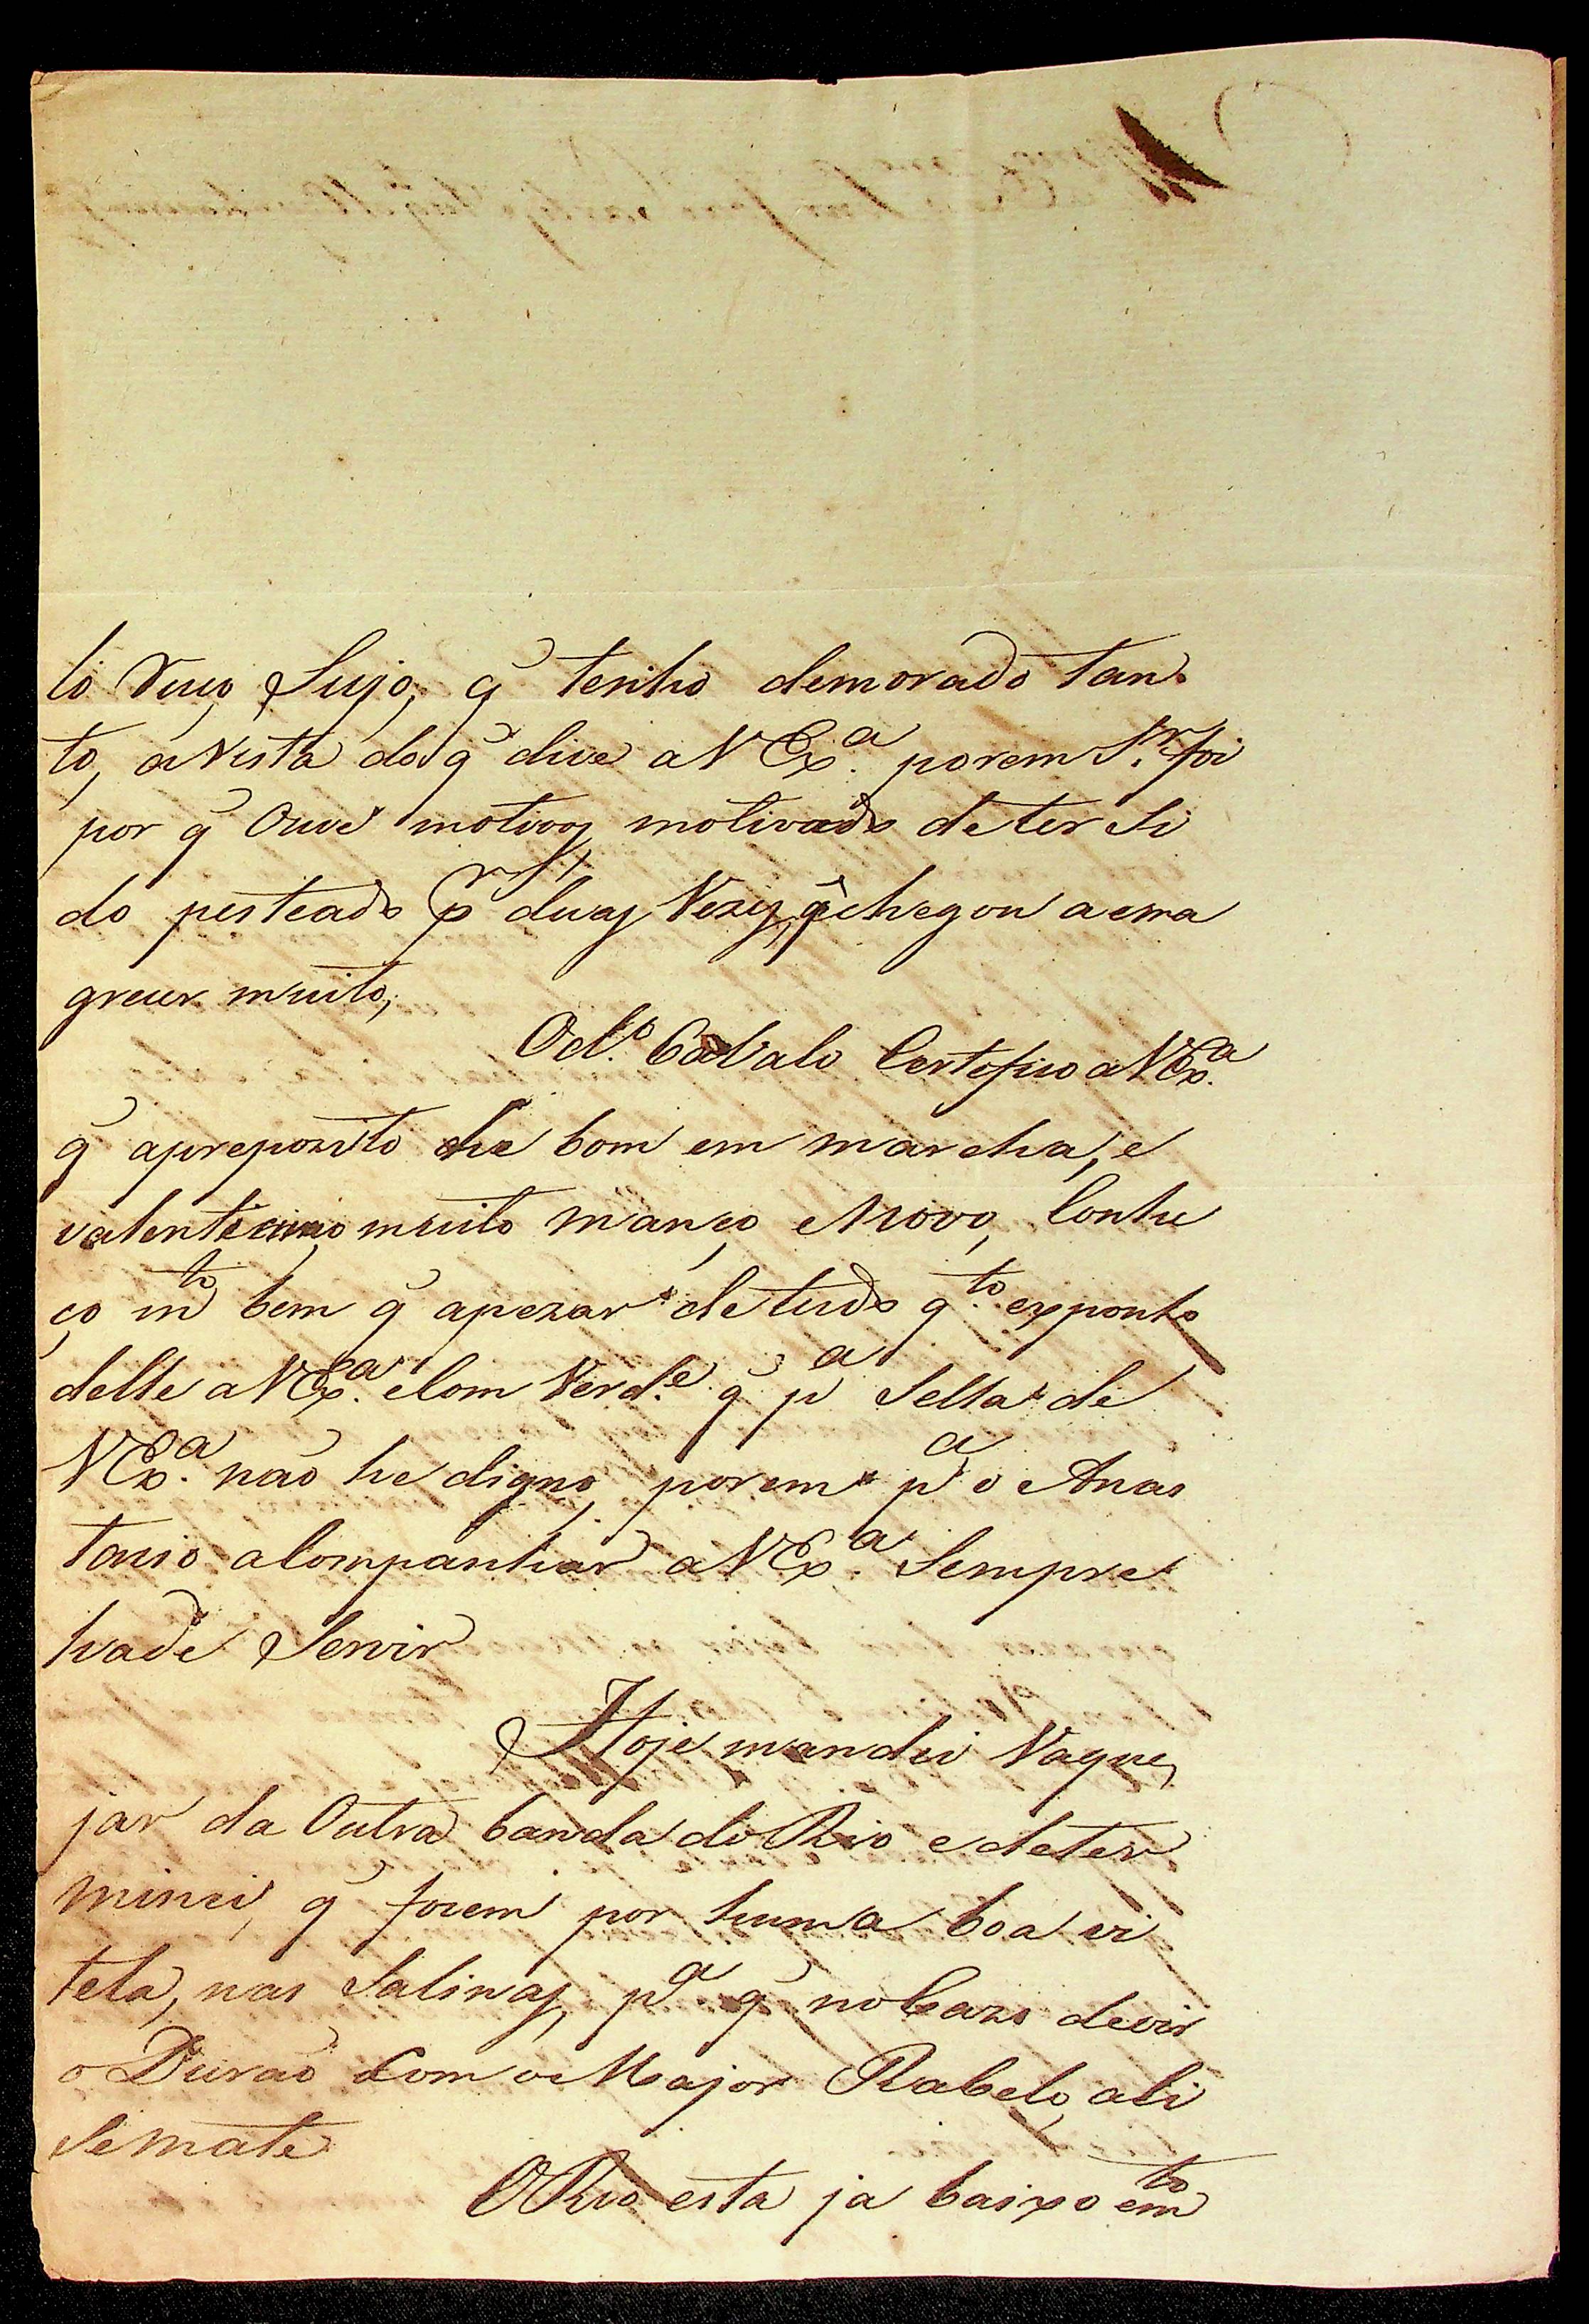 lo Ruço Sujo, q̃ tenho demorado tan
to, avista do q̃ dice a V Ex.ª porem S.r foi
por q̃ Ouve motivos, motivado de ter Si
do pesteado p.r duas Vezes, q̃ chegou a ema
grecer muito;
O d.º Cavalo Certefico a V Ex.ª
q̃ aprepozito he bom em marcha, e
valentécimo muito manço, e Novo, Conhe
ço m.to bem q̃ apezar de tudo q.to exponho
delle a V Ex.ª e Com Verd.e q̃ p.ª Sella de
V Ex.ª não he digno, porem p.ª o Anas
tacio aCompanhar a V Ex.ª Sempre
hade Servir
Hoje mandei Vaque
jar da Outra banda do Rio e deter
minei, q̃ focem por huma boa vi
tela, nas Salinas, p.ª q̃ no Cazo de vir
o Durão Com o Major Rabelo, ali
Se mate
O Rio esta ja baixo e m.to